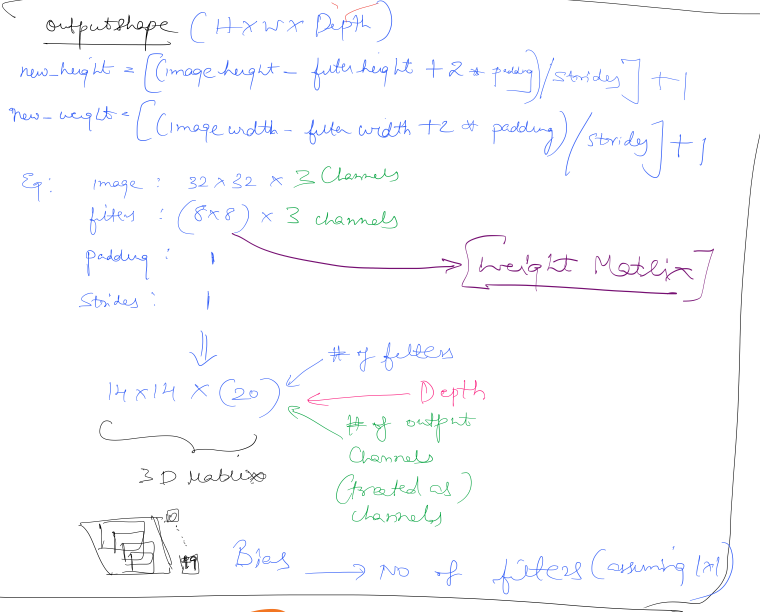 outputshape (H×W× Depth)
new_height = [(image height - filter height + 2 * padding)/strides] + 1
new_weight = [(image width - filter width + 2 * padding)/strides] + 1
Eg: image : 32 × 32 × 3 Channels
filters : (8×8) × 3 channels
padding : 1
Strides : 1
[Weight Matrix]
# of filters
14 × 14 × (20)
Depth
# of output
Channels
(treated as)
channels
3D Matrix
Bias → No of filters (assuming 1×1)